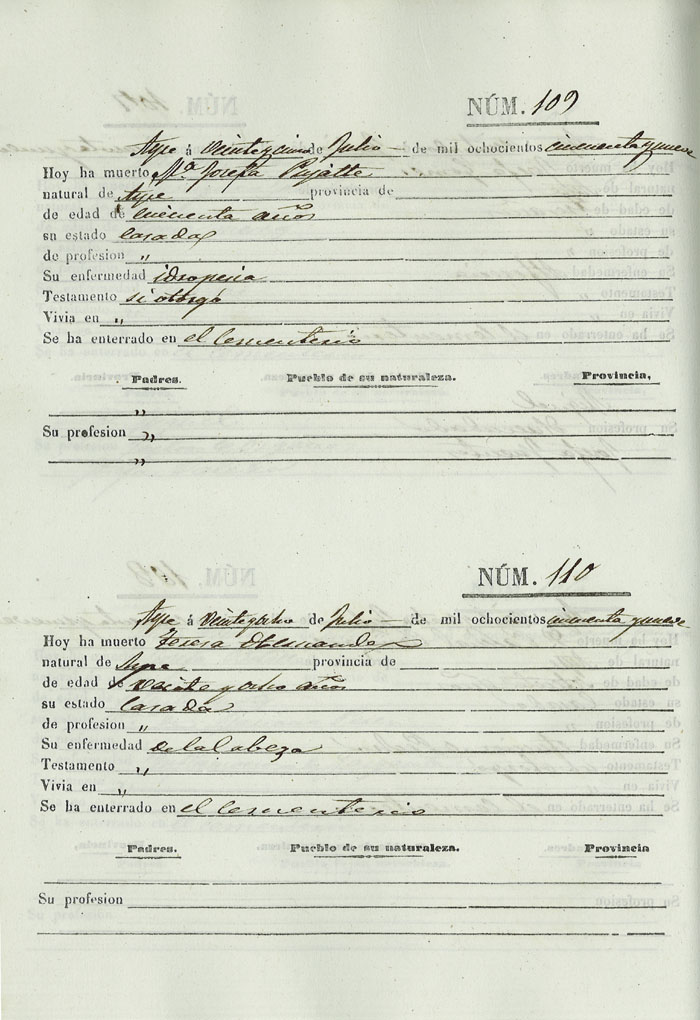 NÚM. 109
Aspe á veintecinco de Julio de mil ochocientos cincuenta y nueve
Hoy ha muerto Mª Josefa Pujalte
natural de Aspe provincia de
de edad de cincuenta años
su estado casada
de profesion "
Su enfermedad idropesia
Testamento si otorgó
Vivia en "
Se ha enterrado en el Cementerio
Padres. Pueblo de su naturaleza. Provincia,
"
Su profesion "
"
NÚM. 110
Aspe á veinteyocho de Julio de mil ochocientos cincuenta y nueve
Hoy ha muerto Teresa
natural de provincia de
de edad de veinte y ocho años
su estado casada
de profesion "
Su enfermedad de la Cabeza
Testamento "
Vivia en "
Se ha enterrado en el Cementerio
Padres. Pueblo de su naturaleza. Provincia
Su profesion